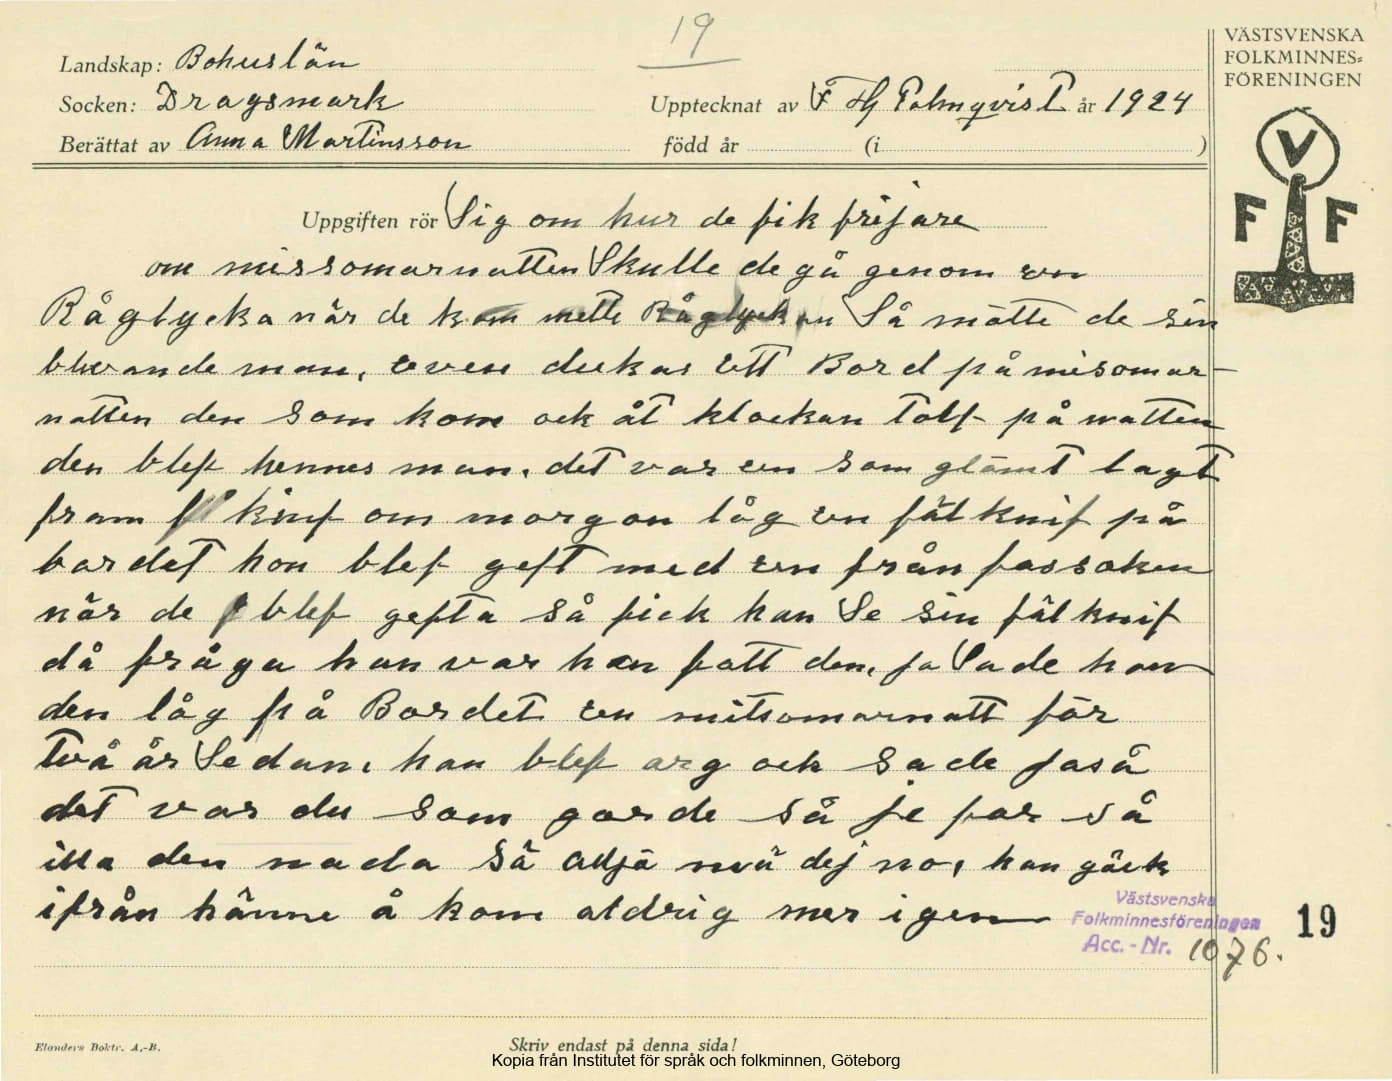 19
VÄSTSVENSKA
FOLKMINNES=
FÖRENINGEN
Landskap: Bohuslän
Socken: Dragsmark
Upptecknat av F Hj Palmqvist år 1924
Berättat av Anna Martinsson
född år (i )
V
F F
Uppgiften rör Sig om hur de fik frijare
om missomarnatten Skulle de gå genom en
Råglycka när de kom mette Råglyckan Så mötte de sin
blivande man, even dukas ett Bord på misomar-
natten den som kom ock åt klockan tolf på natten
den blef hennes man, det var en som glömt lagt
fram knif om morgon låg en fälknif på
bordet hon blef geft med en från fassoken
när de blef gefta så fick han Se sin fälknif
då fråga han var hon fått den, ja Sade hon
den låg på Bordet en mitsomarnatt för
två år Sedan, han blef arg ock sade jaså
det var du som gorde så je far så
illa den nada så adjö mä dej no, han gäck
ifrån hänne å kom aldrig mer igen
Västsvenska
Folkminnesföreningen
Acc. - Nr. 1076.
19
Elanders Boktr. A.-B.
Skriv endast på denna sida!
Kopia från Institutet för språk och folkminnen, Göteborg